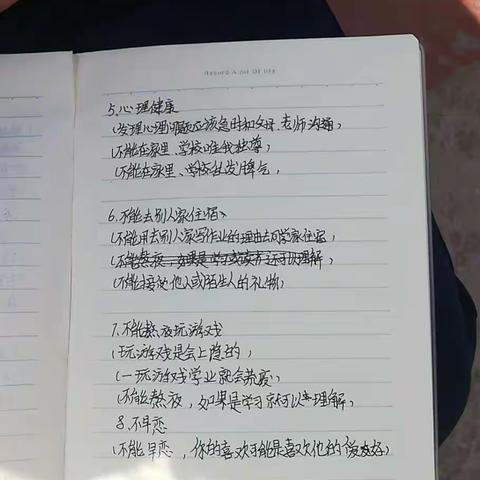 Record A bit Of life
5.心理健康
(发理心理问题应该急时和父母、老师沟通,
(不能在家里、学校唯我独尊,
(不能在家里、学校乱发脾气,
6.不能去别人家住宿
(不能用去别人家写作业的理由去同学家住宿,
(不能熬夜,如果是学习或读书还可以理解,
(不能接放他人或陌生人的礼物,
7.不能熬夜玩游戏
(玩游戏是会上瘾的,
(一玩游戏学业就会荒废,
(不能熬夜,如果是学习就可以理解,
8.不早恋
(不能早恋,你的喜欢可能是喜欢他的(爱好)